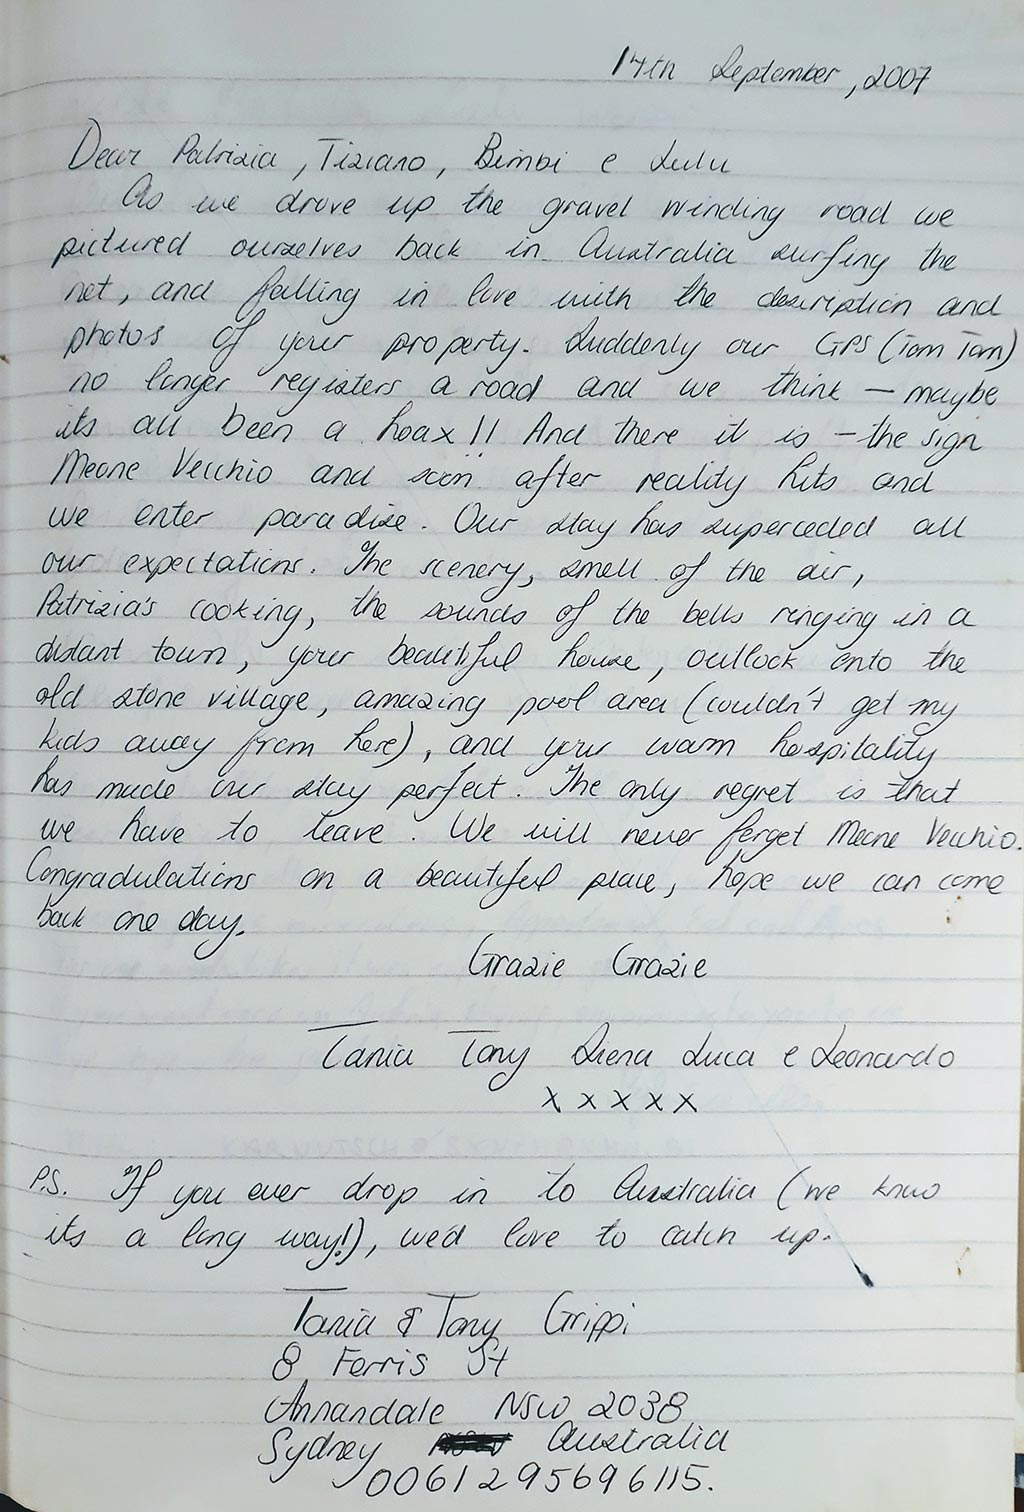 14th September, 2007
Dear Patrizia, Tiziano, Bimbi e Lulu
As we drove up the gravel winding road we
pictured ourselves back in Australia surfing the
net, and falling in love with the description and
photos of your property. Suddenly our GPS (Tom Tom)
no longer registers a road and we think — maybe
its all been a hoax!! And there it is – the sign
Meone Vecchio and soon after reality hits and
we enter paradise. Our stay has superceded all
our expectations. The scenery, smell of the air,
Patrizia's cooking, the sounds of the bells ringing in a
distant town, your beautiful house, outlook onto the
old stone village, amazing pool area (couldn't get my
kids away from here), and your warm hospitality
has made our stay perfect. The only regret is that
we have to leave. We will never forget Meone Vecchio.
Congradulations on a beautiful place, hope we can come
back one day.
Grazie Grazie
Tania Tony Siena Luca e Leonardo
x x x x x
P.S. If you ever drop in to Australia (we know
its a long way!), we'd love to catch up.
Tania & Tony Grippi
8 Ferris St
Annandale NSW 2038
Sydney Australia
0061295696115.